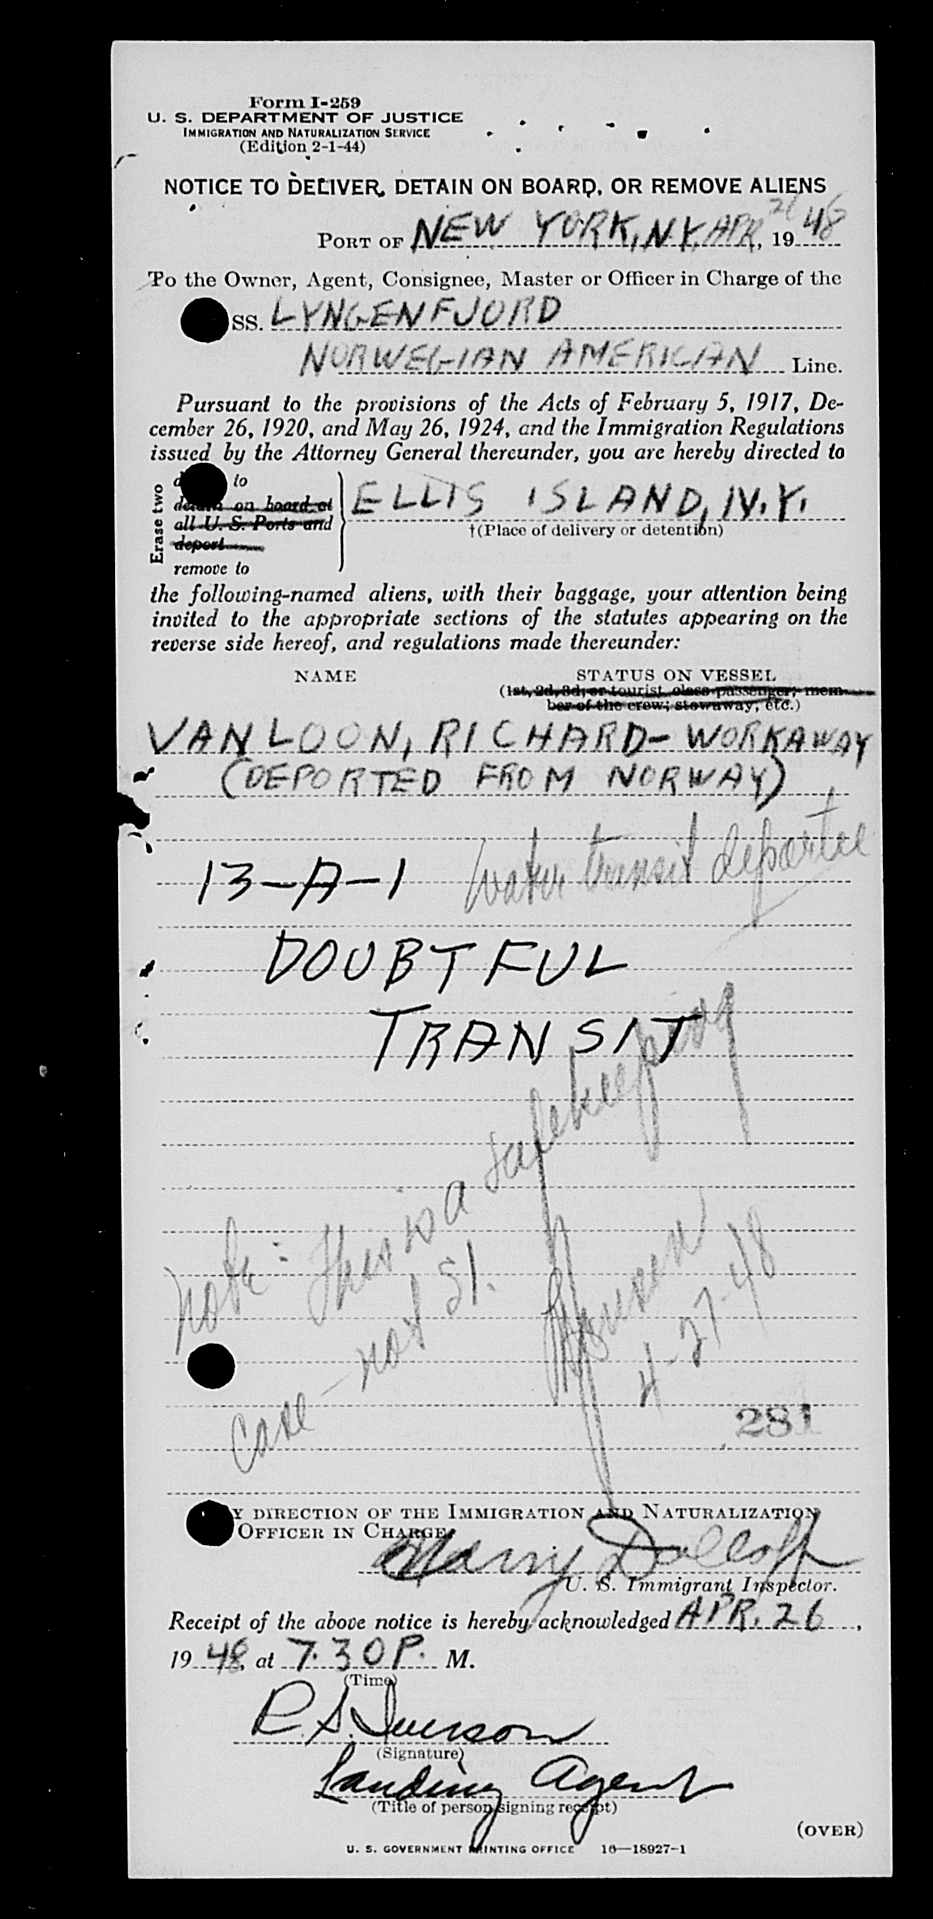 Form I-259
U. S. DEPARTMENT OF JUSTICE
IMMIGRATION AND NATURALIZATION SERVICE
(Edition 2-1-44)
NOTICE TO DELIVER, DETAIN ON BOARD, OR REMOVE ALIENS
PORT OF NEW YORK, N.Y. APR 26, 1948
To the Owner, Agent, Consignee, Master or Officer in Charge of the
SS. LYNGENFJORD
NORWEGIAN AMERICAN Line.
Pursuant to the provisions of the Acts of February 5, 1917, De-
cember 26, 1920, and May 26, 1924, and the Immigration Regulations
issued by the Attorney General thereunder, you are hereby directed to
Erase two
to
detain on board at
all U. S. Ports and
deport
remove to
ELLIS ISLAND, N.Y.
†(Place of delivery or detention)
the following-named aliens, with their baggage, your attention being
invited to the appropriate sections of the statutes appearing on the
reverse side hereof, and regulations made thereunder:
NAME STATUS ON VESSEL
(1st, 2d, 3d, or tourist class passenger; mem-
ber of the crew; stowaway, etc.)
VAN LOON, RICHARD - WORKAWAY
(DEPORTED FROM NORWAY)
13-A-1 water transit deportee
DOUBTFUL
TRANSIT
Note: This is a safekeeping
case - not S1.
4-27-48
281
Y DIRECTION OF THE IMMIGRATION AND NATURALIZATION
OFFICER IN CHARGE
Harry Dolcoff
U. S. Immigrant Inspector.
Receipt of the above notice is hereby acknowledged APR. 26,
1948, at 7.30 P. M.
(Time)
R. S. Iverson
(Signature)
Landing Agent
(Title of person signing receipt)
(OVER)
U. S. GOVERNMENT PRINTING OFFICE 16—18927-1